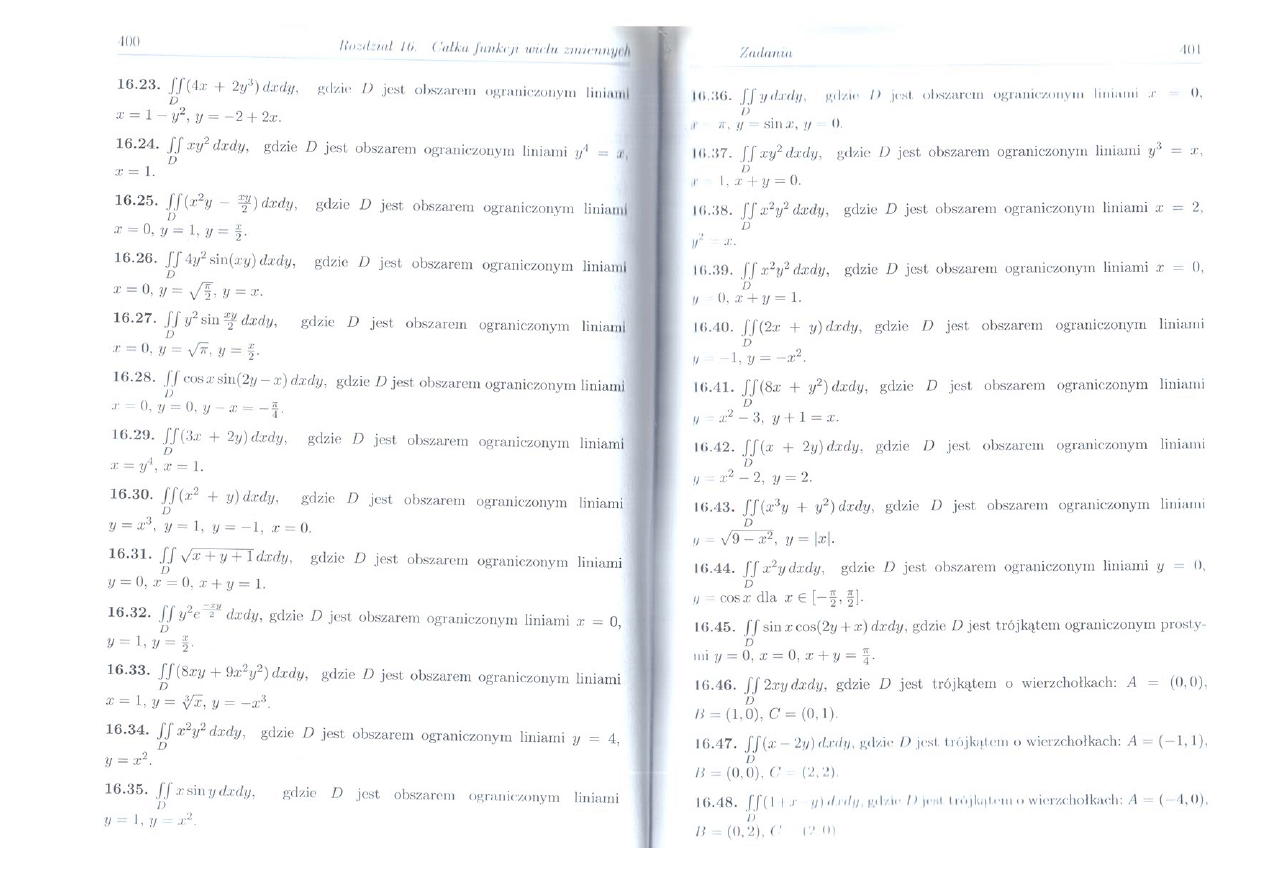 400
Rozdział 16. Całka funkcji wielu zmiennych
16.23. ∬(4x + 2y³) dxdy, gdzie D jest obszarem ograniczonym liniami
D
x = 1 − y², y = −2 + 2x.
16.24. ∬ xy² dxdy, gdzie D jest obszarem ograniczonym liniami y⁴ = x,
D
x = 1.
16.25. ∬(x²y − xy/2) dxdy, gdzie D jest obszarem ograniczonym liniami
D
x = 0, y = 1, y = x/2.
16.26. ∬ 4y² sin(xy) dxdy, gdzie D jest obszarem ograniczonym liniami
D
x = 0, y = √(π/2), y = x.
16.27. ∬ y² sin xy/2 dxdy, gdzie D jest obszarem ograniczonym liniami
D
x = 0, y = √π, y = x/2.
16.28. ∬ cos x sin(2y − x) dxdy, gdzie D jest obszarem ograniczonym liniami
D
x = 0, y = 0, y − x = −π/4.
16.29. ∬(3x + 2y) dxdy, gdzie D jest obszarem ograniczonym liniami
D
x = y⁴, x = 1.
16.30. ∬(x² + y) dxdy, gdzie D jest obszarem ograniczonym liniami
D
y = x³, y = 1, y = −1, x = 0.
16.31. ∬ √(x + y + 1) dxdy, gdzie D jest obszarem ograniczonym liniami
D
y = 0, x = 0, x + y = 1.
16.32. ∬ y²e^(−xy/2) dxdy, gdzie D jest obszarem ograniczonym liniami x = 0,
D
y = 1, y = x/2.
16.33. ∬(8xy + 9x²y²) dxdy, gdzie D jest obszarem ograniczonym liniami
D
x = 1, y = ∛x, y = −x³.
16.34. ∬ x²y² dxdy, gdzie D jest obszarem ograniczonym liniami y = 4,
D
y = x².
16.35. ∬ x sin y dxdy, gdzie D jest obszarem ograniczonym liniami
D
y = 1, y = x².
Zadania
401
16.36. ∬ y dxdy, gdzie D jest obszarem ograniczonym liniami x = 0,
D
x = π, y = sin x, y = 0.
16.37. ∬ xy² dxdy, gdzie D jest obszarem ograniczonym liniami y³ = x,
D
x = 1, x + y = 0.
16.38. ∬ x²y² dxdy, gdzie D jest obszarem ograniczonym liniami x = 2,
D
y² = x.
16.39. ∬ x²y² dxdy, gdzie D jest obszarem ograniczonym liniami x = 0,
D
y = 0, x + y = 1.
16.40. ∬(2x + y) dxdy, gdzie D jest obszarem ograniczonym liniami
D
y = −1, y = −x².
16.41. ∬(8x + y²) dxdy, gdzie D jest obszarem ograniczonym liniami
D
y = x² − 3, y + 1 = x.
16.42. ∬(x + 2y) dxdy, gdzie D jest obszarem ograniczonym liniami
D
y = x² − 2, y = 2.
16.43. ∬(x³y + y²) dxdy, gdzie D jest obszarem ograniczonym liniami
D
y = √(9 − x²), y = |x|.
16.44. ∬ x²y dxdy, gdzie D jest obszarem ograniczonym liniami y = 0,
D
y = cos x dla x ∈ [−π/2, π/2].
16.45. ∬ sin x cos(2y + x) dxdy, gdzie D jest trójkątem ograniczonym prosty-
D
mi y = 0, x = 0, x + y = π/4.
16.46. ∬ 2xy dxdy, gdzie D jest trójkątem o wierzchołkach: A = (0,0),
D
B = (1,0), C = (0,1).
16.47. ∬(x − 2y) dxdy, gdzie D jest trójkątem o wierzchołkach: A = (−1,1),
D
B = (0,0), C = (2,2).
16.48. ∬(1 + x − y) dxdy, gdzie D jest trójkątem o wierzchołkach: A = (−4,0),
D
B = (0,2), C